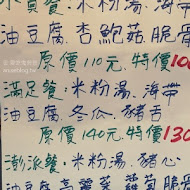 餐:米粉湯、海帶
油豆腐、杏鮑菇、脆管
原價110元,特價100
滿足餐:米粉湯、海帶
油豆腐、冬瓜、豬舌
原價140元,特價130
澎派餐:米粉湯、豬心
油豆腐、高麗菜、蘿蔔